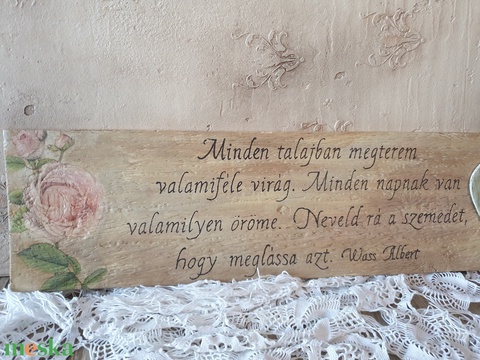 Minden talajban megterem
valamiféle virág. Minden napnak van
valamilyen öröme. Neveld rá a szemedet,
hogy meglássa azt. Wass Albert
meska